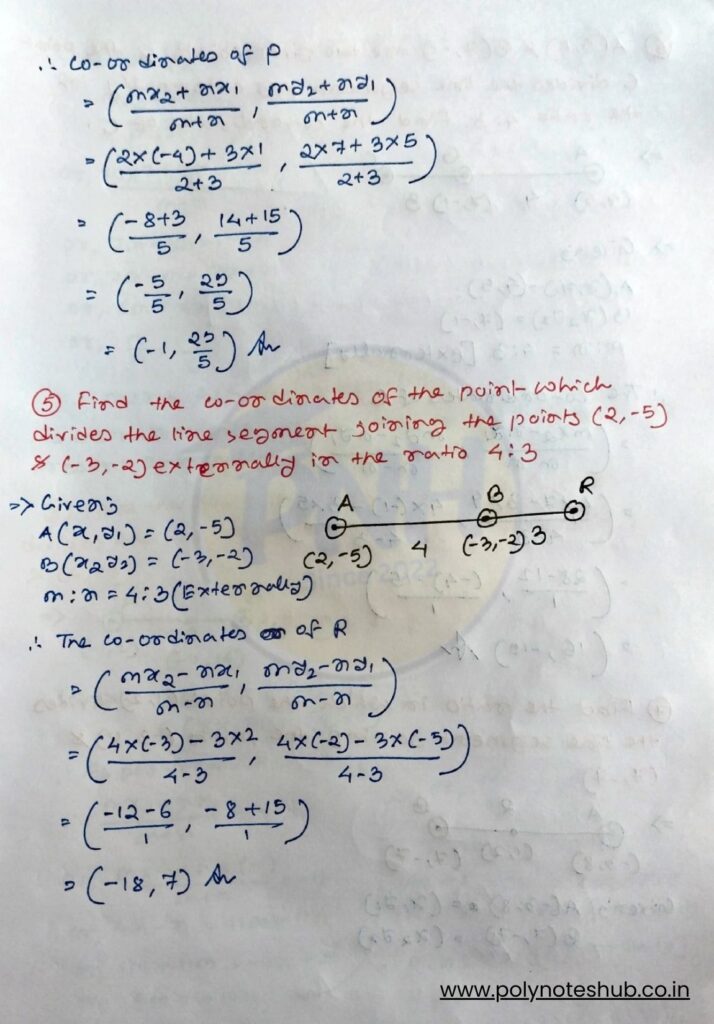 ∴ Co-ordinates of P
= ( (mx₂ + nx₁)/(m+n) , (my₂ + ny₁)/(m+n) )
= ( (2×(-4) + 3×1)/(2+3) , (2×7 + 3×5)/(2+3) )
= ( (-8+3)/5 , (14+15)/5 )
= ( -5/5 , 29/5 )
= (-1, 29/5) Ans
⑤ Find the co-ordinates of the point which
divides the line segment joining the points (2,-5)
& (-3,-2) externally in the ratio 4:3
=> Given;
A(x, y₁) = (2,-5)
B(x₂ y₂) = (-3,-2)
m:n = 4:3 (Externally)
A B R
(2,-5) 4 (-3,-2) 3
∴ The co-ordinates of R
= ( (mx₂ - nx₁)/(m-n) , (my₂ - ny₁)/(m-n) )
= ( (4×(-3) - 3×2)/(4-3) , (4×(-2) - 3×(-5))/(4-3) )
= ( (-12-6)/1 , (-8+15)/1 )
= (-18, 7) Ans
PNH
Since 2024
www.polynoteshub.co.in